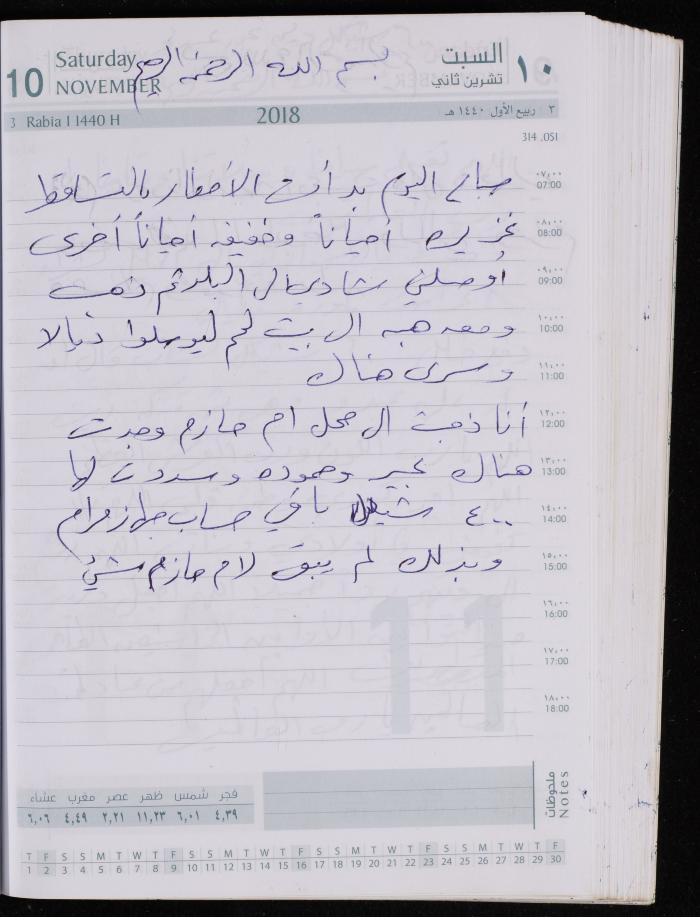 10 Saturday NOVEMBER
بسم الله الرحمن الرحيم
السبت ١٠
تشرين ثاني
3 Rabia I 1440 H
2018
٣ ربيع الأول ١٤٤٠ هـ
314 .051
صباح اليوم بدأت الأمطار بالتساقط
٠٧,٠٠ 07:00
غزيره أحياناً وخفيفه أحياناً أخرى
٠٨,٠٠ 08:00
أوصلني شادي الى البلد ثم ذهب
٠٩,٠٠ 09:00
ومعه هبه الى بيت لحم ليوصلوا ديالا
١٠,٠٠ 10:00
وسرى هناك
١١,٠٠ 11:00
أنا ذهبت الى محل ام حازم وجدت
١٢,٠٠ 12:00
هناك عبير وحموده وسددت لها
١٣,٠٠ 13:00
٤٠٠ شيقل باقي حساب جهاز مرام
١٤,٠٠ 14:00
وبذلك لم يبق لام حازم شيئ
١٥,٠٠ 15:00
١٦,٠٠ 16:00
١٧,٠٠ 17:00
١٨,٠٠ 18:00
11
ملحوظات Notes
فجر شمس ظهر عصر مغرب عشاء
٤,٣٩ ٦,٠١ ١١,٢٣ ٢,٢١ ٤,٤٩ ٦,٠٦
T F S S M T W T F S S M T W T F S S M T W T F S S M T W T F
1 2 3 4 5 6 7 8 9 10 11 12 13 14 15 16 17 18 19 20 21 22 23 24 25 26 27 28 29 30